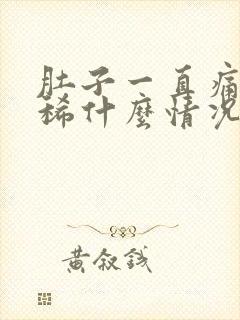 肚子一直痛
稀什麼情况
黄叙钱